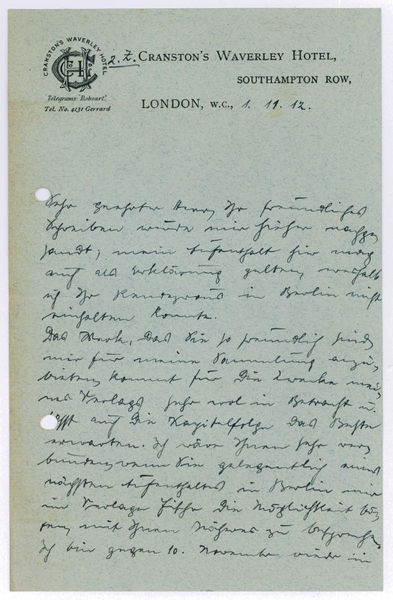 CRANSTON'S WAVERLEY HOTEL
z. Z. CRANSTON'S WAVERLEY HOTEL,
SOUTHAMPTON ROW,
Telegrams "Rohcart."
Tel. No. 4131 Gerrard
LONDON, W.C., 1. 11. 12.
Sehr geehrter Herr, Ihr freundliches
Schreiben wurde mir hieher nachge
sandt; mein Aufenthalt hier mag
auch als Erklärung gelten, weshalb
ich Ihr Rendezvous in Berlin nicht
einhalten konnte.
Das Werk, das Sie so freundlich sind,
mir für meine Sammlung anzu-
bieten, kommt für die Zwecke mei-
nes Verlags sehr wol in Betracht u.
lässt auf die Kapitelfolge das Beste
erwarten. Ich wäre Ihnen sehr ver-
bunden, wenn Sie gelegentlich eines
nächsten Aufenthaltes in Berlin mir
im Verlage die Möglichkeit
mit Ihnen Näheres zu besprechen.
Ich bin gegen 10. November wieder in